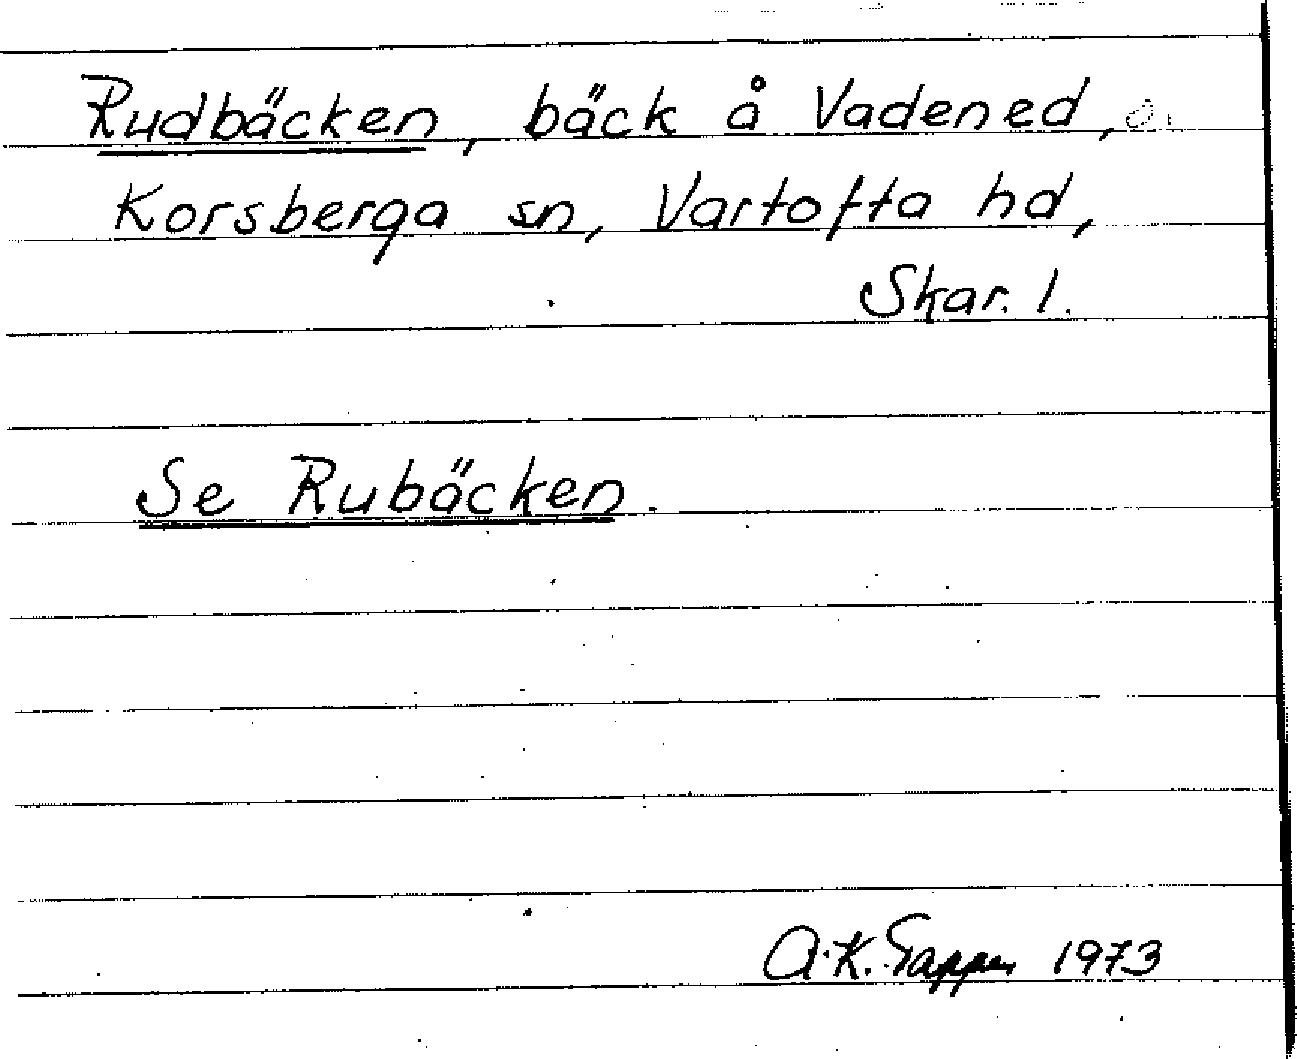 Rudbäcken, bäck å Vadened,
Korsberga sn, Vartofta hd,
Skar. l.
Se Rubäcken.
A.K. 1973